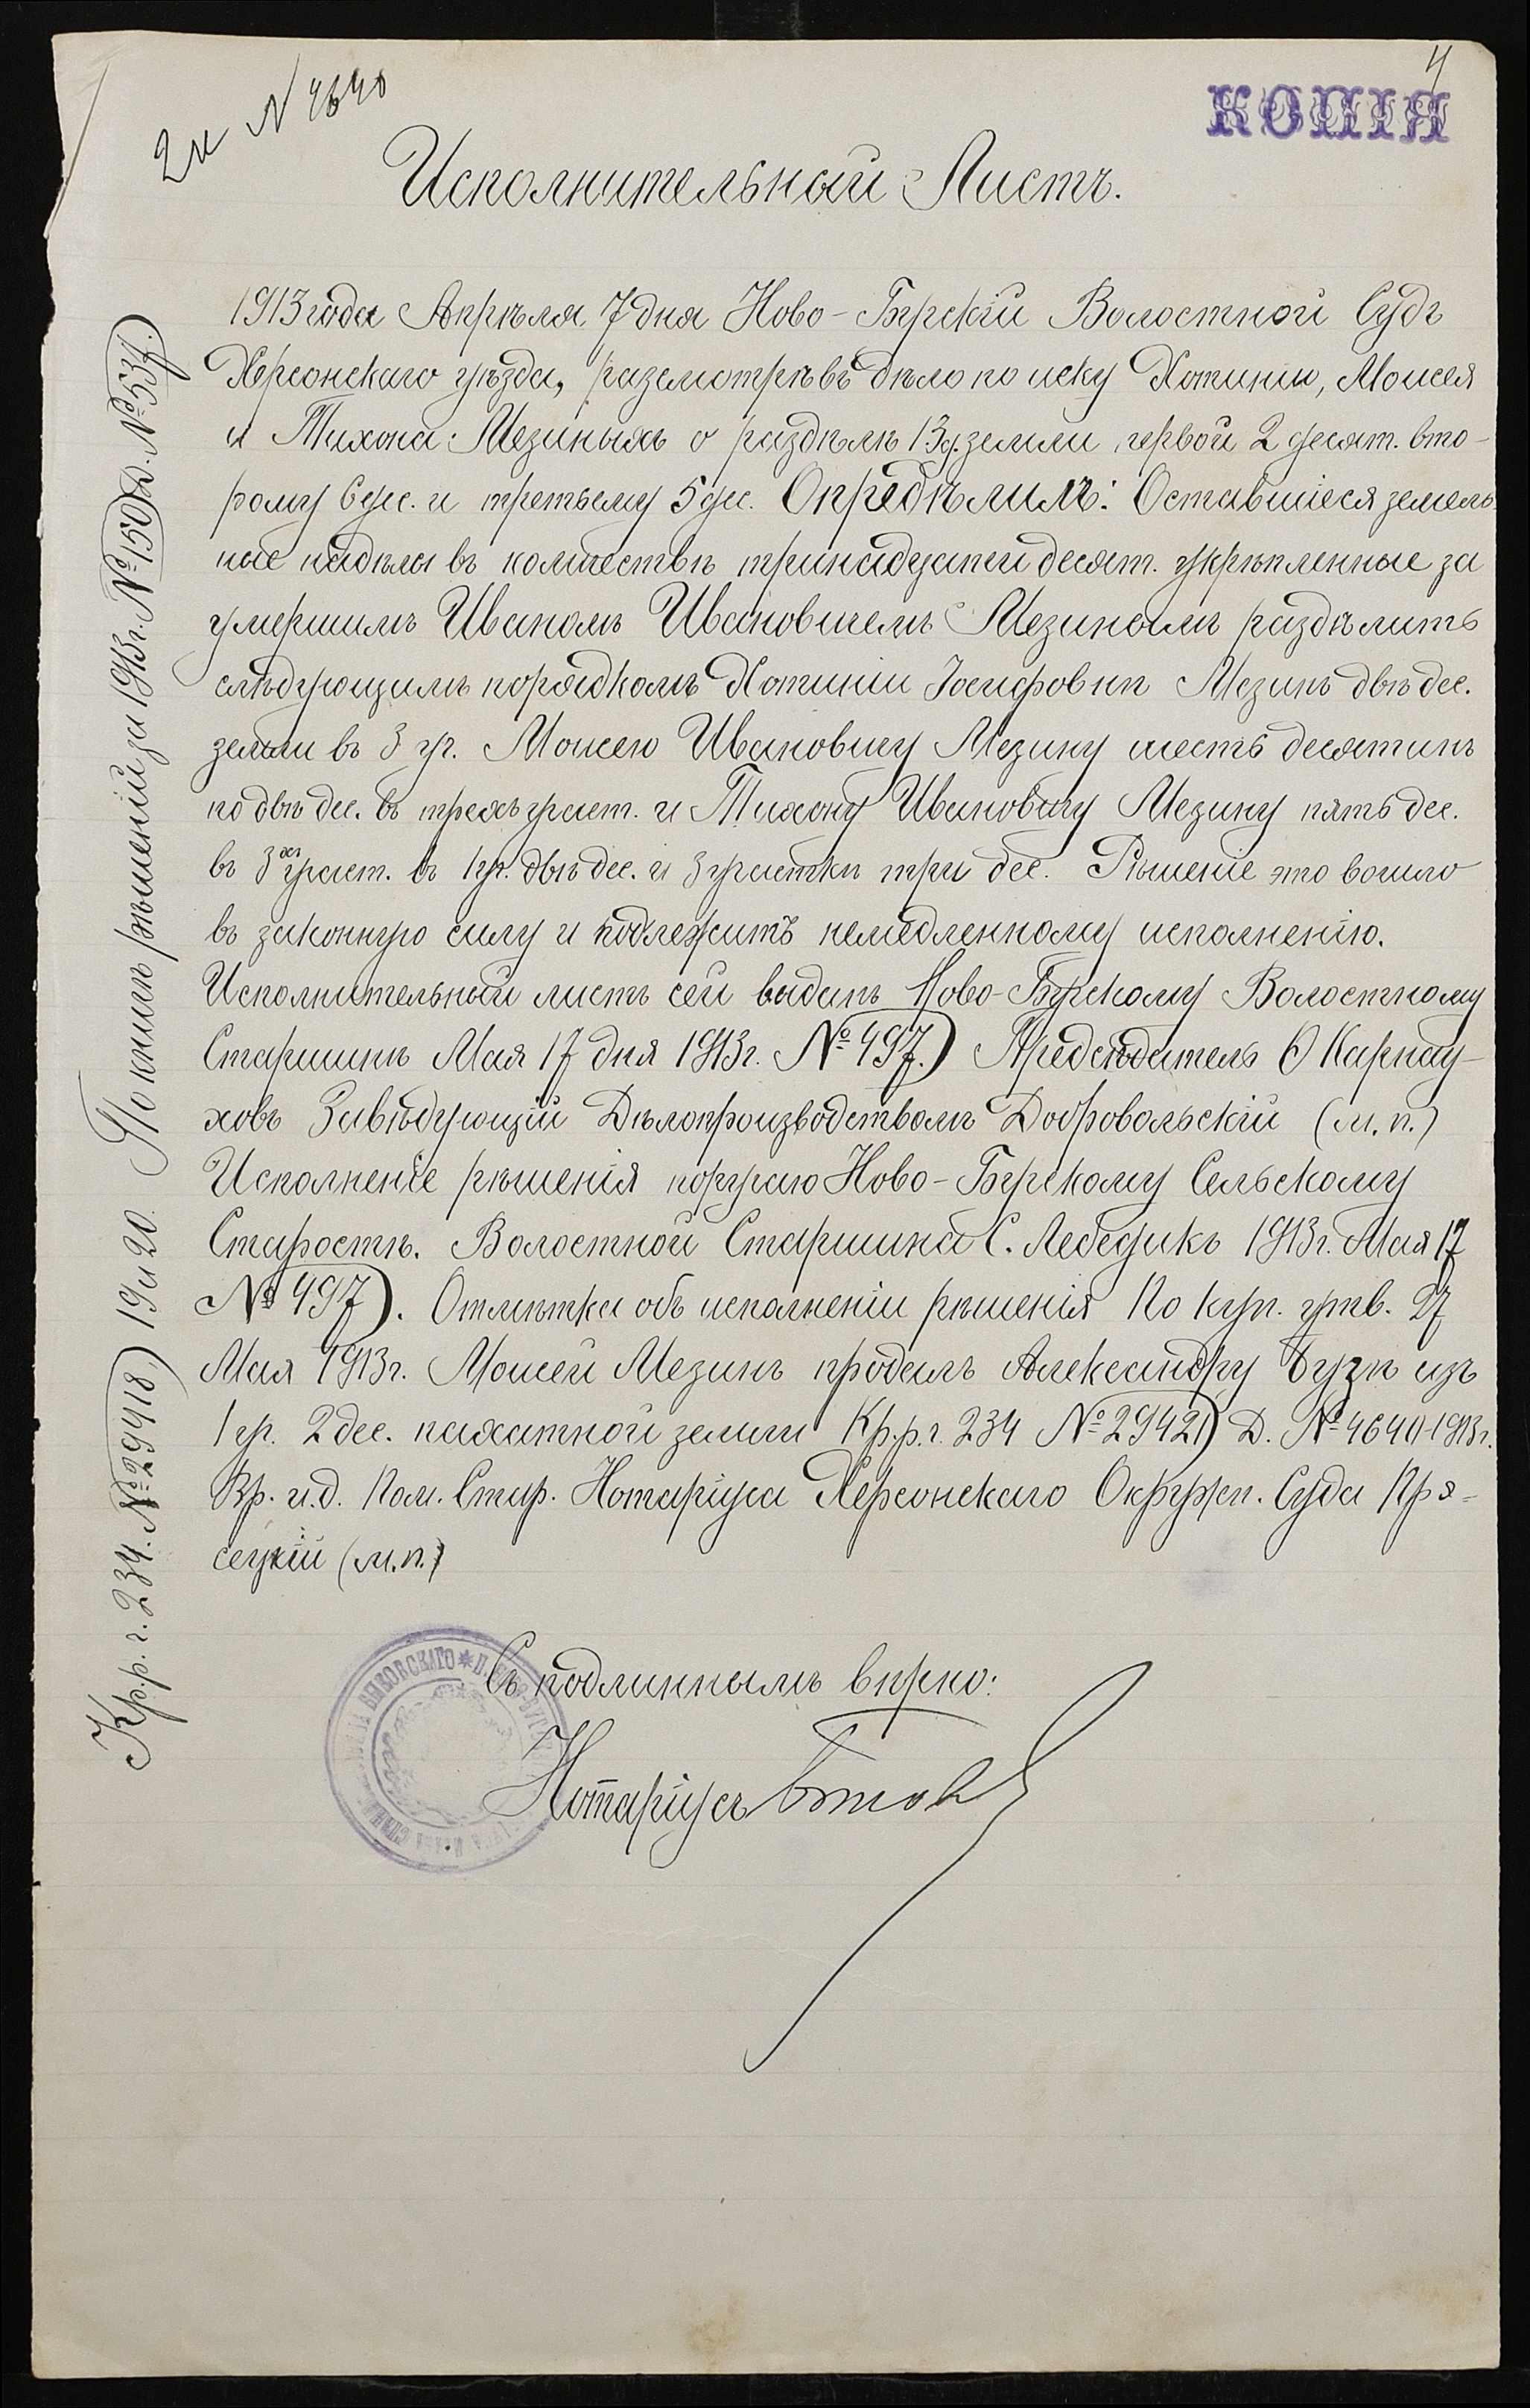 4
КОПІЯ
2 к № 4640
Исполнительный Листъ.
1913 года Апрѣля 7 дня Ново-Бугскій Волостной Судъ
Херсонскаго уѣзда, разсмотрѣвъ дѣло по иску Хотиніи, Моисея
и Тихона Мезиныхъ о раздѣлѣ 13 д. земли первой 2 десят. вто-
рому 6 дес. и третьему 5 дес. Опредѣлилъ: Оставшіеся земель
ные надѣлы въ количествѣ тринадцати десят. укрѣпленные за
умершимъ Иваномъ Ивановичемъ Мезинымъ раздѣлить
слѣдующимъ порядкомъ Хотиніи Іосифовнѣ Мезинъ двѣ дес.
земли въ 3 уч. Моисею Ивановичу Мезину шесть десятинъ
по двѣ дес. въ трехъ участ. и Тихону Ивановичу Мезину пять дес.
въ 3хъ участ. въ 1 уч. двѣ дес. и 3 участкѣ три дес. Рѣшеніе это вошло
въ законную силу и подлежитъ немедленному исполненію.
Исполнительный листъ сей выданъ Ново-Бугскому Волостному
Старшинѣ Мая 17 дня 1913 г. № 497.) Предсѣдатель О Карнау-
ховъ Завѣдующій Дѣлопроизводствомъ Добровольскій (м.п.)
Исполненіе рѣшенія поручаю Ново-Бугскому Сельскому
Старостѣ. Волостной Старшина С. Лебедикъ 1913 г. Мая 17
№ 497). Отмѣтка объ исполненіи рѣшенія По куп. утв. 27
Мая 1913 г. Моисей Мезинъ продалъ Александру Бузѣ изъ
1 уч. 2 дес. пахатной земли Кр.р.г. 234 № 29421) Д. № 4640-1913 г.
Вр. и.д. Пом. Стар. Нотаріуса Херсонскаго Окружн. Суда Пря-
сецкій (м.п.)
Съ подлиннымъ вѣрно:
Нотаріусъ
Кр.р.г. 234. № 29418) 19 и 20. По книгѣ рѣшеній за 1913 г. № 150 Д. № 537.)